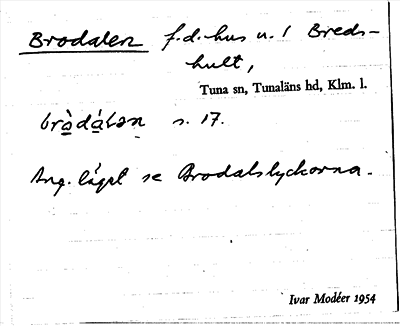 Brodalen f.d. hus u. 1 Breds-
hult,
Tuna sn, Tunaläns hd, Klm. l.
brò̲dá̲lən s. 17.
Ang. läget se Brodalslyckorna.
Ivar Modéer 1954